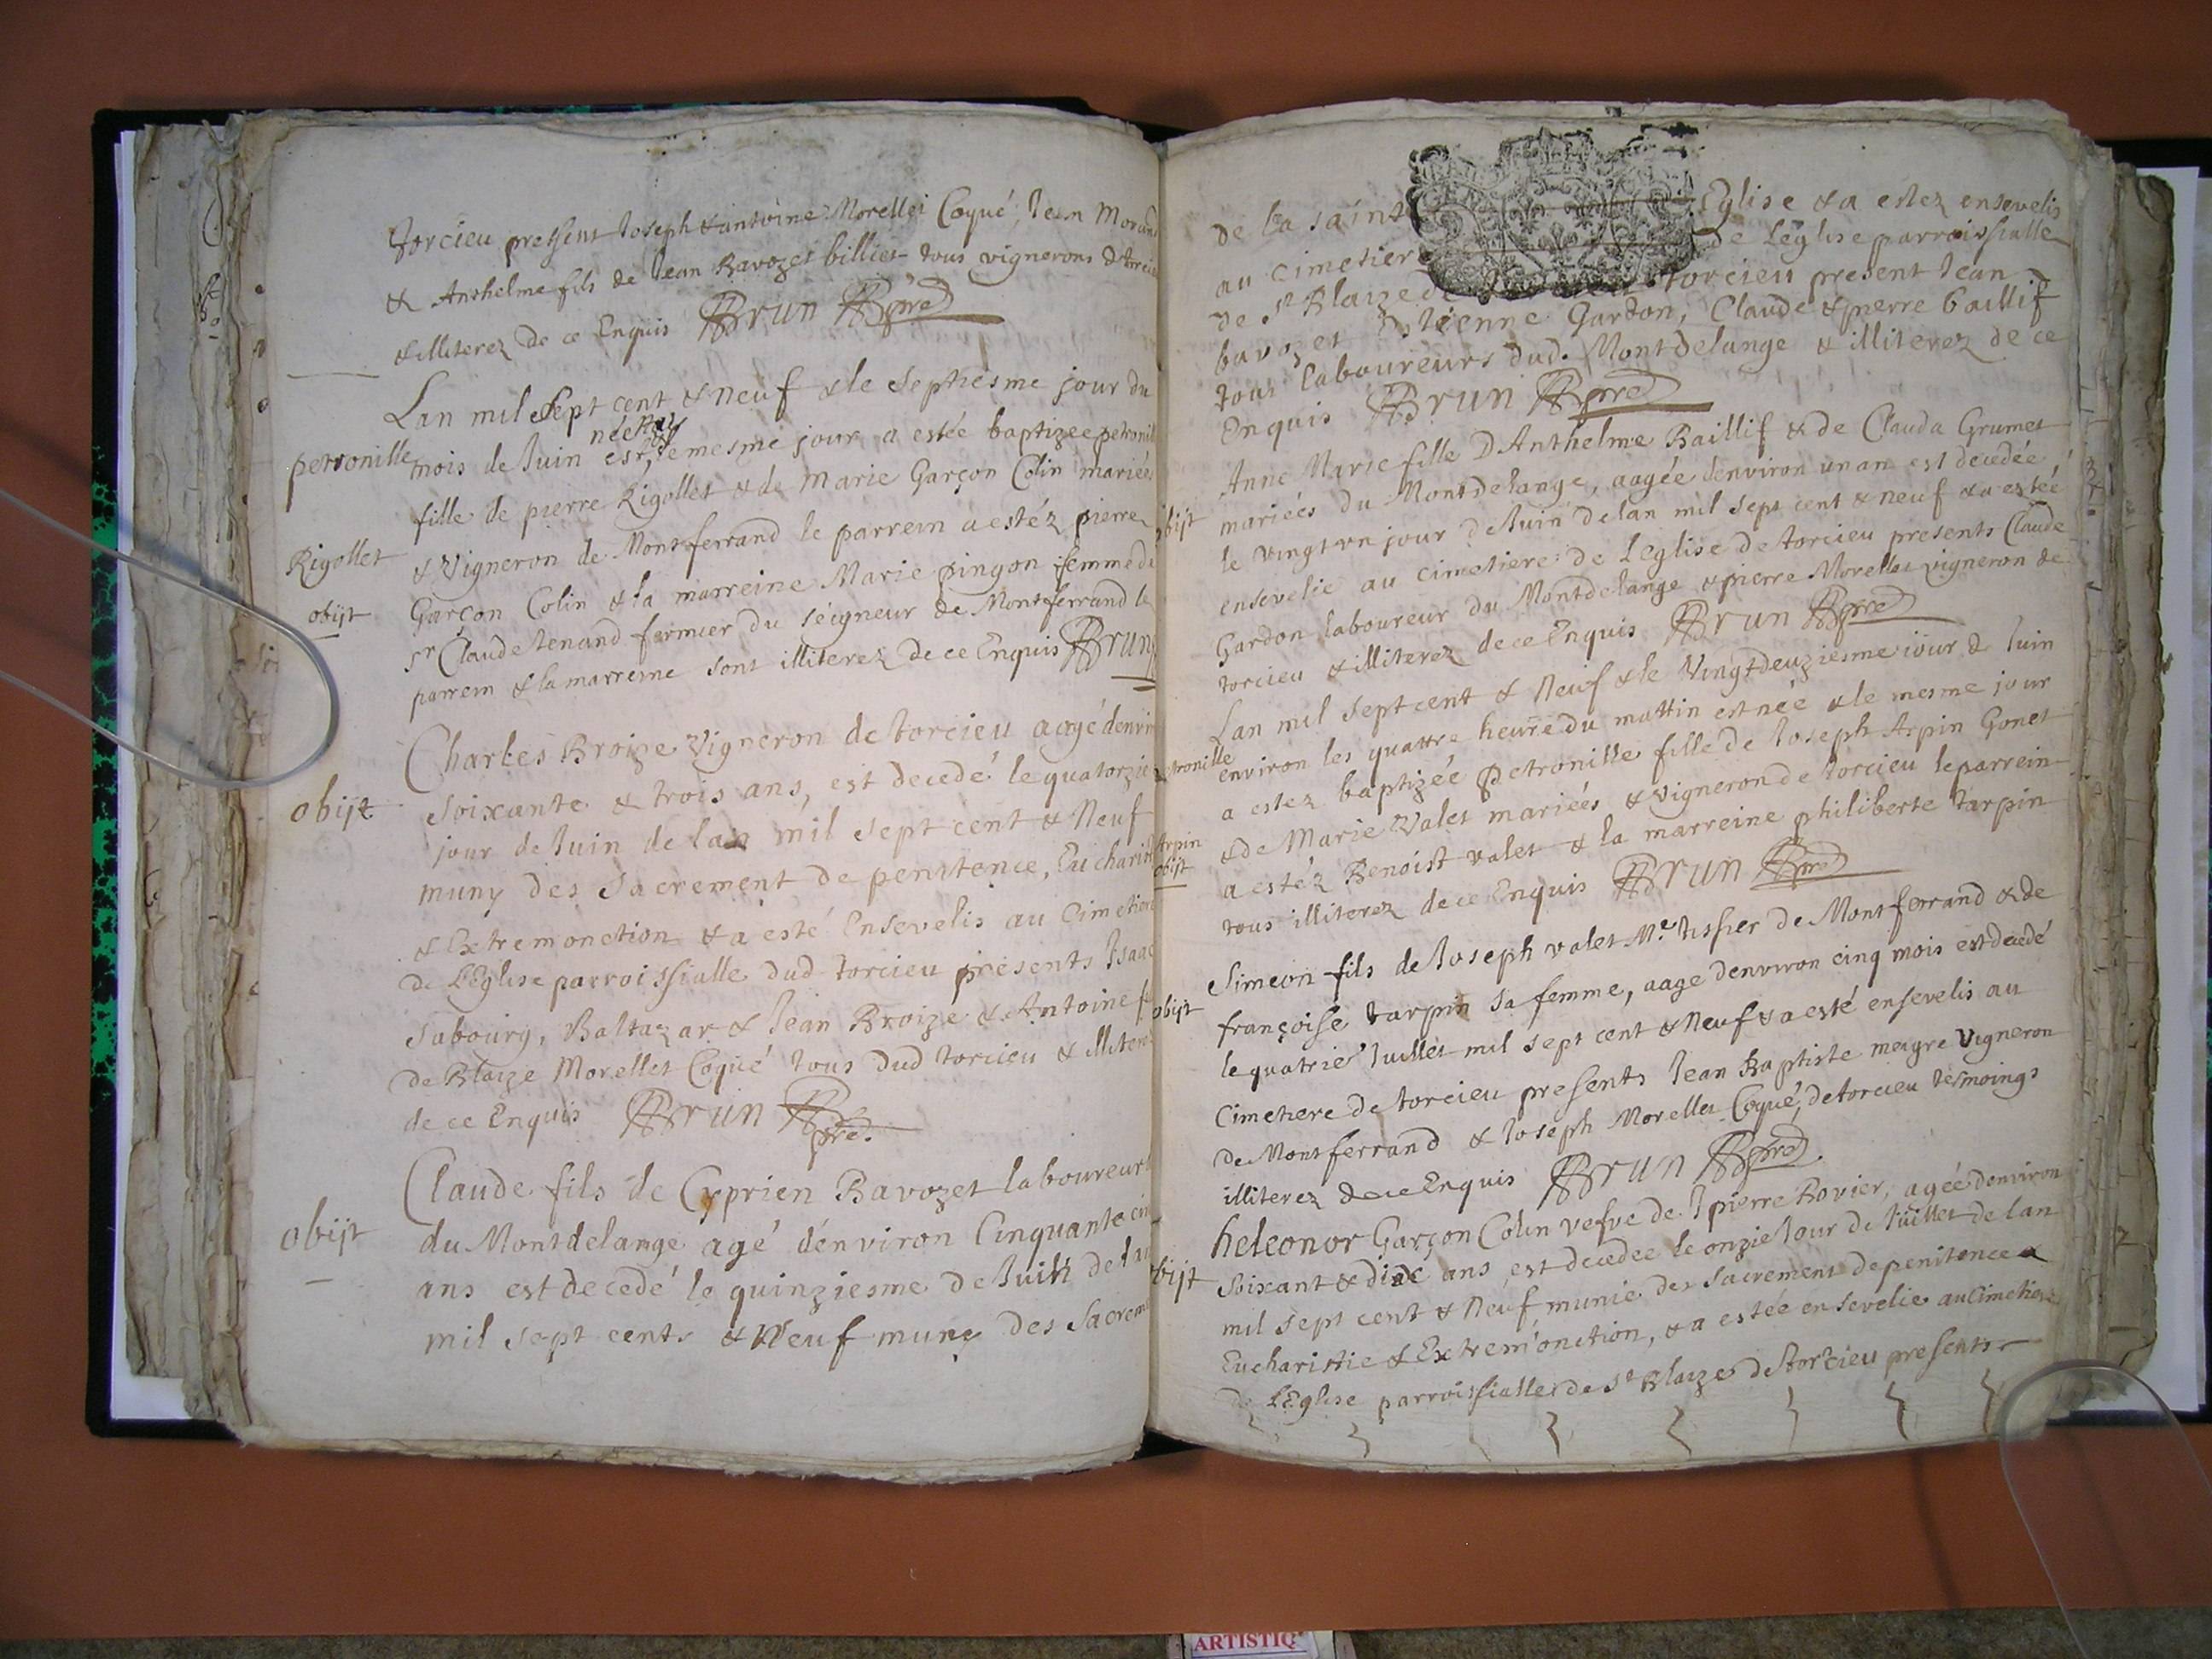 Torcieu present Joseph & antoine Morellet Coqué, Jean Morand
& Anthelme fils de Jean Ravozet billiet tous vignerons de torcieu
& illiterez de ce Enquis BRun pre
Lan mil Sept cent & Neuf & le Septiesme jour du
petronille
mois de Juin est née & le mesme jour a estée baptizée petronille
fille de pierre Rigollet & de Marie Garçon Colin mariées
Rigollet
& Vigneron de Montferrand le parrein a estéz pierre
obijt
Garçon Colin & la marreine Marie pingon femme de
sr Claude tenand fermier du séigneur de Montferrand le
parrein & la marreine sont illiterez de ce Enquis BRun
Charles Broize Vigneron de torcieu aagé denviron
obijt
soixante & trois ans, est decedé le quatorzie
jour de Juin de lan mil sept cent & Neuf
muny des Sacrement de penitence, Eucharist
& Extremonction & a esté Ensevelis au Cimetiere
de LEglise parroissialle dud torcieu presents Isaac
Sabourg, Baltazar & Jean Broize & Antoine fils
de Blaize Morellet Coqué tous dud torcieu & illiterez
de ce Enquis BRun pre.
Claude fils de Cyprien Ravozet laboureur
obijt
du Montdelange agé dénviron Cinquante cinq
ans est decedé le quinziesme de Juin de lan
mil sept cents & Neuf muny des Sacrem
de la sainte Eglise & a estez ensevelis
au Cimetier de Léglise parroissialle
de St Blaize de torcieu present Jean
bavozet Etienne Gardon, Claude & pierre baillif
tous laboureurs dud. Montdelange & illiterez de ce
Enquis BRun pre
Anne Marie fille DAnthelme Baillif & de Clauda Grumet
obijt
mariées du Montdelange, aagée denviron un an est decedée
le Vingt vn jour de Juin de lan mil sept cent & neuf & a estée
ensevelie au cimetiere de Leglise de torcieu presents Claude
Gardon laboureur du Montdelange & pierre Morellet vigneron de
torcieu & illiterez de ce Enquis BRun pre
Lan mil sept cent & Neuf & le Vingtdeuziesme iour de Juin
petronille
environ les quattre heure du mattin est née & le mesme jour
a estez baptizée Petronille fille de Joseph Arpin Gonet
& de Marie Valet mariées & vigneron de torcieu le parrein
Arpin
obijt
a estéz Benoist valet & la marreine philiberte tarpin
tous illiterez de ce Enquis BRun pre
Simeon fils de Joseph valet Me tissier de Montferrand & de
obijt
françoise tarpin sa femme, aage denviron cinq mois est decedé
le quatrie Juillet mil sept cent & Neuf & a esté ensevelis au
Cimetiere de torcieu presents Jean Baptiste meigre Vigneron
de Montferrand & Joseph Morellet Coqué, de torcieu tesmoings
illiterez de ce Enquis BRun pre
heleonor Garçon Colin vefve de pierre Rovier, agée denviron
obijt
Soixant & dix ans est decedee le onzie Jour de Juillet de lan
mil sept cent & Neuf munie des Sacrement de penitence &
Eucharistie & Extrem'onction, & a estée ensevelie au Cimetiere
de LEglise parroissialle de St Blaize de torcieu presents
ARTISTIQ